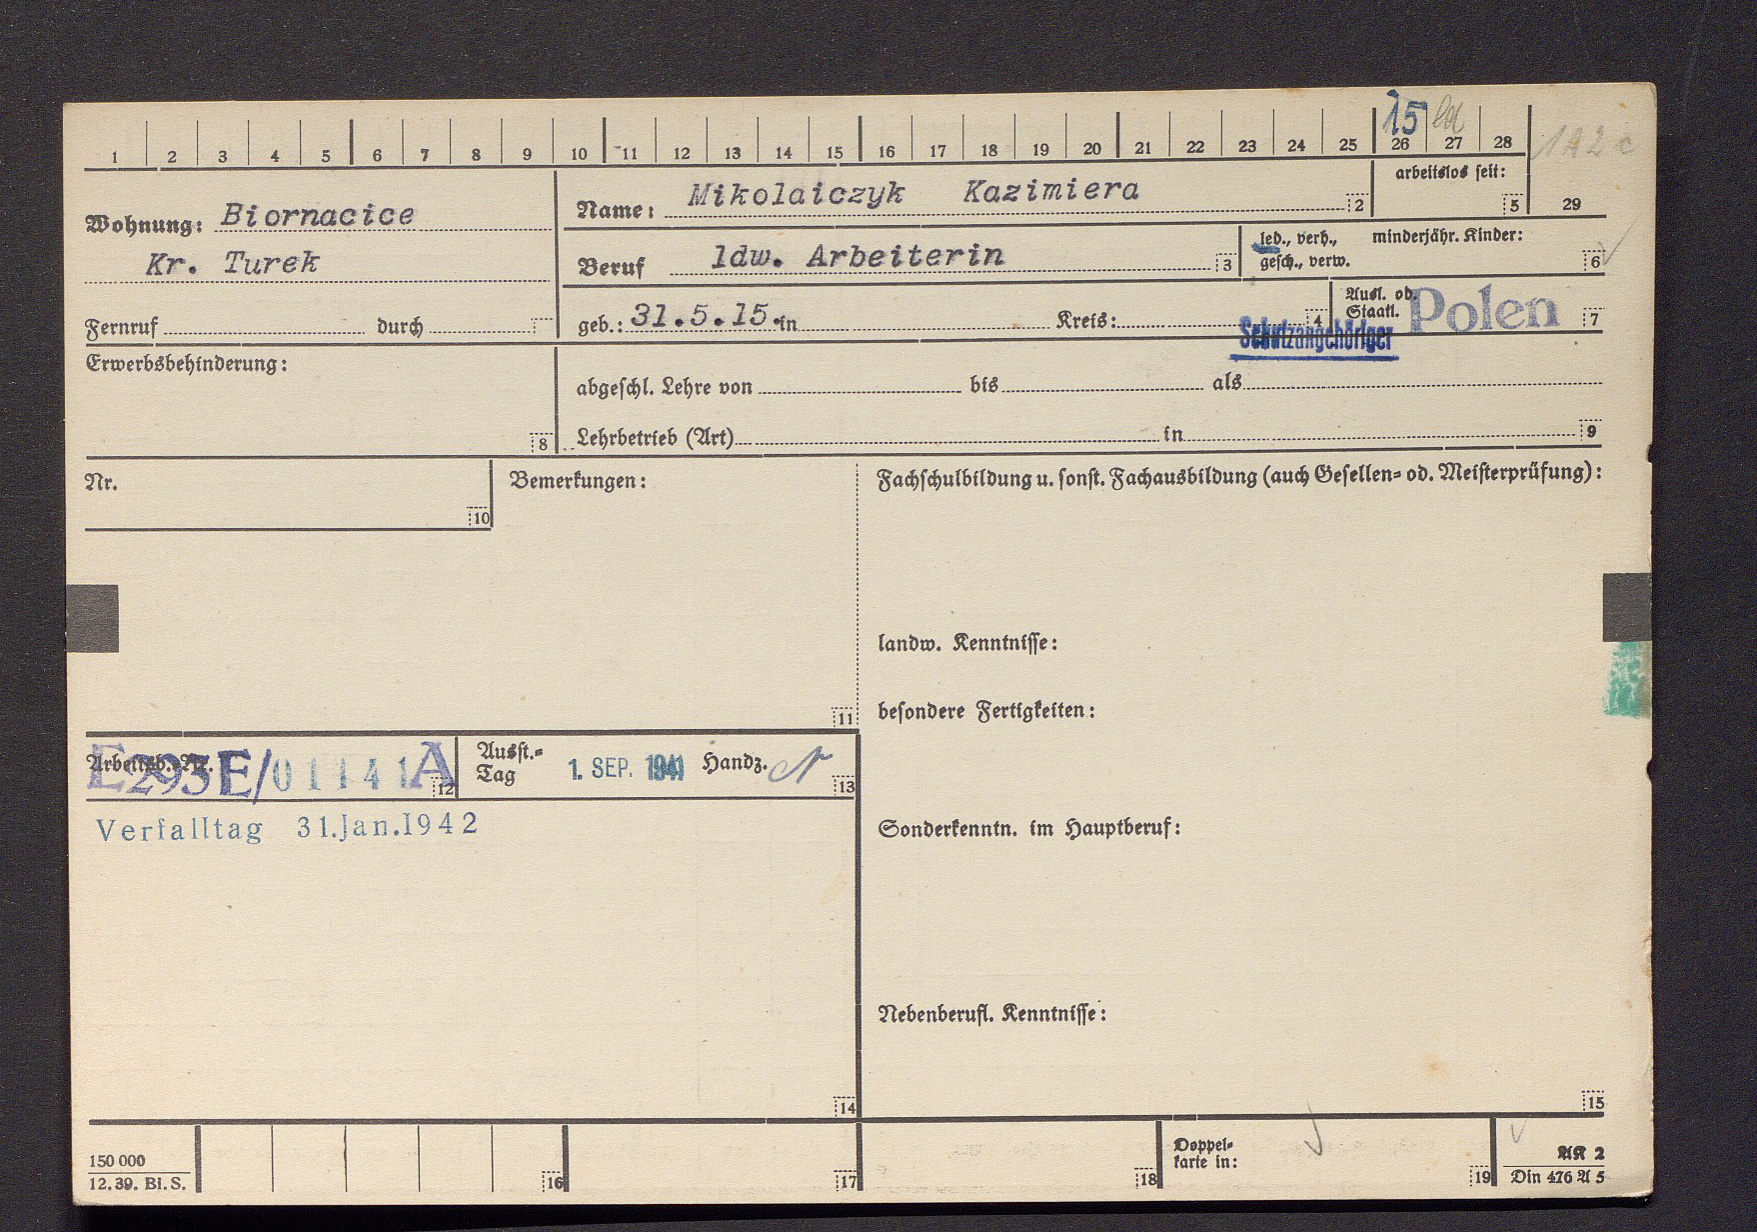 15
1 2 3 4 5 6 7 8 9 10 11 12 13 14 15 16 17 18 19 20 21 22 23 24 25 26 27 28
1A2c
Wohnung: Biornacice
Kr. Turek
Fernruf durch
Name: Mikolaiczyk Kazimiera 2
arbeitslos seit: 5
29
Beruf ldw. Arbeiterin 3
led., verh., minderjähr. Kinder:
gesch., verw. 6
geb.: 31.5.15. in Kreis: 4
Ausl. od.
Staatl. Polen 7
Schutzangehöriger
Erwerbsbehinderung:
8
abgeschl. Lehre von bis als
Lehrbetrieb (Art) in 9
Nr.
10
Bemerkungen:
11
Fachschulbildung u. sonst. Fachausbildung (auch Gesellen= od. Meisterprüfung):
landw. Kenntnisse:
besondere Fertigkeiten:
Arbeitsb.-Nr. E293E/01141A 12
Ausst.=
Tag 1. SEP. 1941 Handz. 13
Verfalltag 31.Jan.1942
14
Sonderkenntn. im Hauptberuf:
Nebenberufl. Kenntnisse:
15
150 000
12. 39. Bl. S.
16
17
18
Doppel=
karte in: 19
AK 2
Din 476 A 5